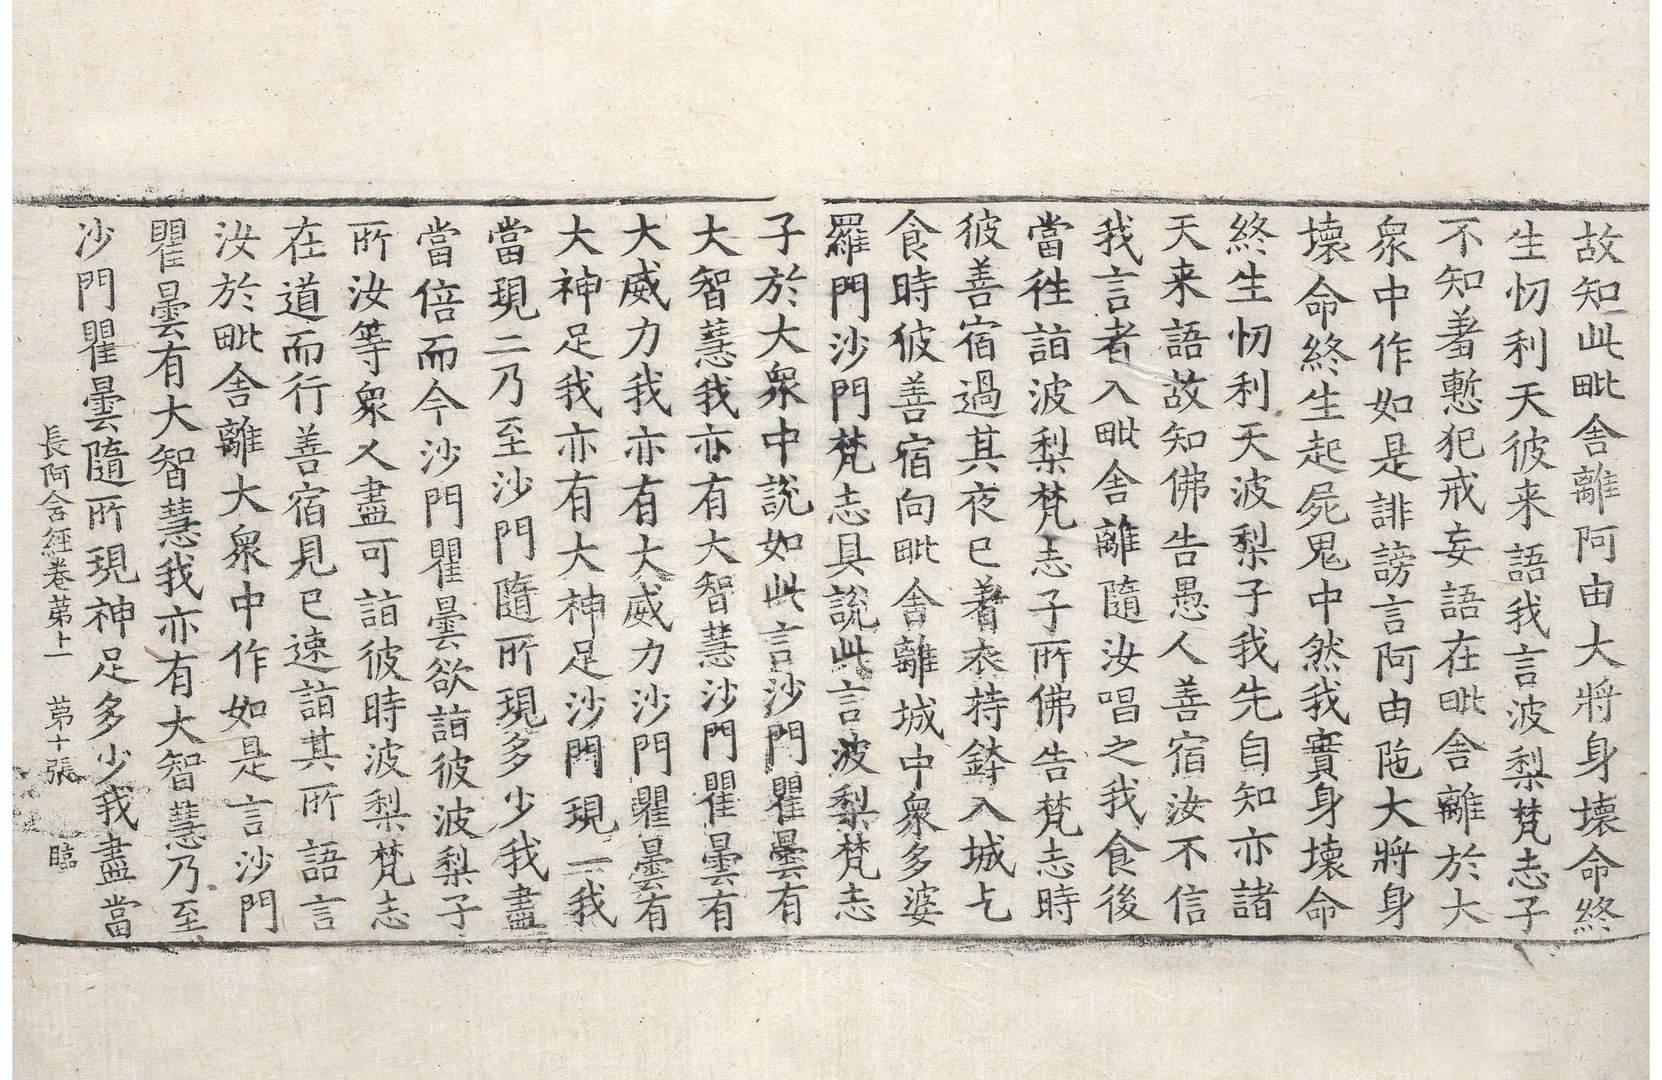 故知此毗舍離阿由大將身壞命終
生忉利天彼来語我言波梨梵志子
不知羞慙犯戒妄語在毗舍離於大
衆中作如是誹謗言阿由陁大將身
壞命終生起屍鬼中然我實身壞命
終生忉利天波梨子我先自知亦諸
天来語故知佛告愚人善宿汝不信
我言者入毗舍離隨汝唱之我食後
當往詣波梨梵志子所佛告梵志時
彼善宿過其夜已着衣持鉢入城乞
食時彼善宿向毗舍離城中衆多婆
羅門沙門梵志具說此言波梨梵志
子於大衆中說如此言沙門瞿曇有
大智慧我亦有大智慧沙門瞿曇有
大威力我亦有大威力沙門瞿曇有
大神足我亦有大神足沙門現一我
當現二乃至沙門隨所現多少我盡
當倍而今沙門瞿曇欲詣彼波梨子
所汝等衆人盡可詣彼時波梨梵志
在道而行善宿見已速詣其所語言
汝於毗舍離大衆中作如是言沙門
瞿曇有大智慧我亦有大智慧乃至
沙門瞿曇隨所現神足多少我盡當
長阿含經卷第十一 第十張 臨